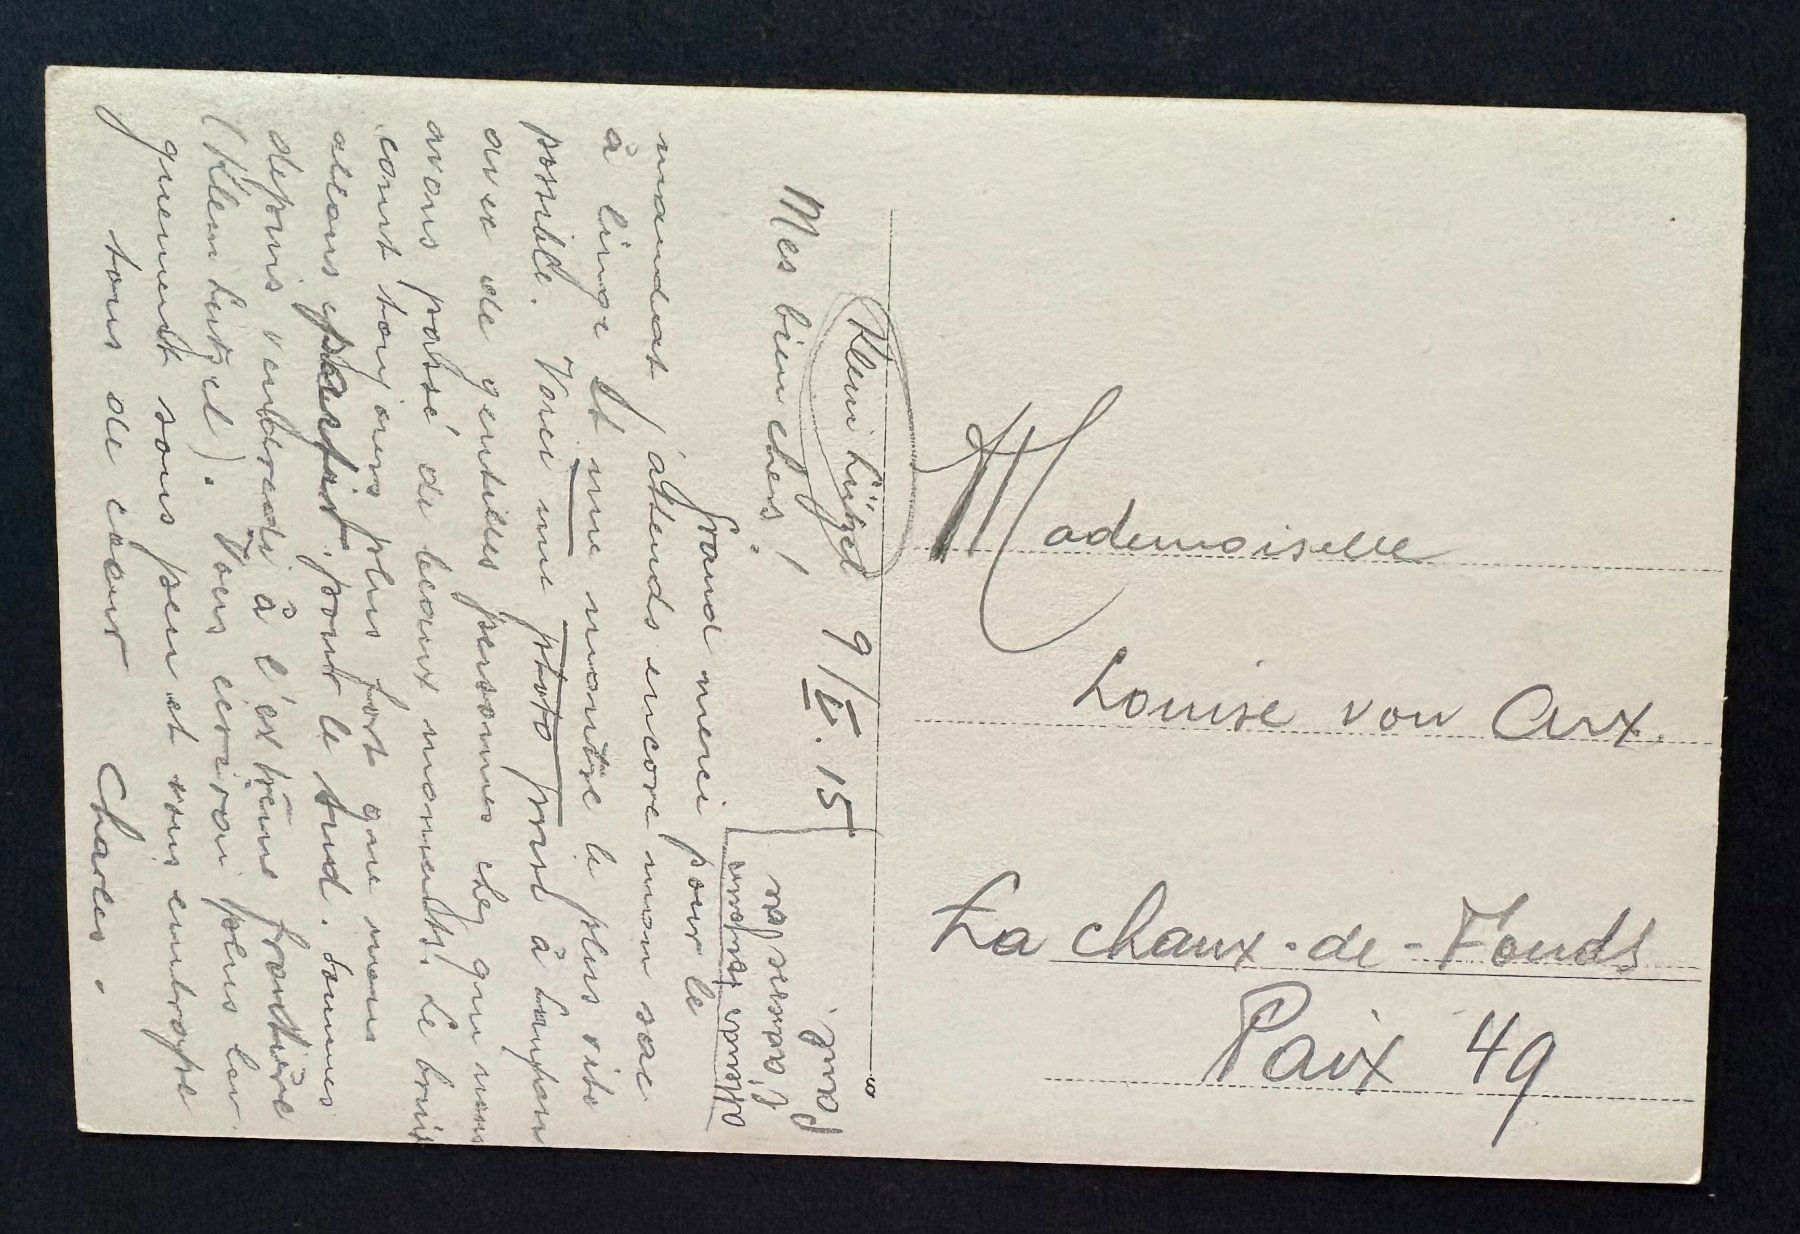 Klein Lützel 9/V. 15
Mes bien chers!
Grand merci pour le
mandat j'attends encore mon sac
à linge et une montre le plus vite
possible. Voici une photo prise à Laufon
avec de gentilles personnes chez qui nous
avons passé de beaux moments. Le bruit
court toujours plus fort que nous
allons partir pour le sud. Sommes
depuis vendredi à l'extrème frontière
(Klein Lützel). Vous écrirai plus lon-
guement sous peu et vous embrasse
tous de cœur Charles.
Mademoiselle
Louise von Arx.
La Chaux-de-Fonds
Paix 49